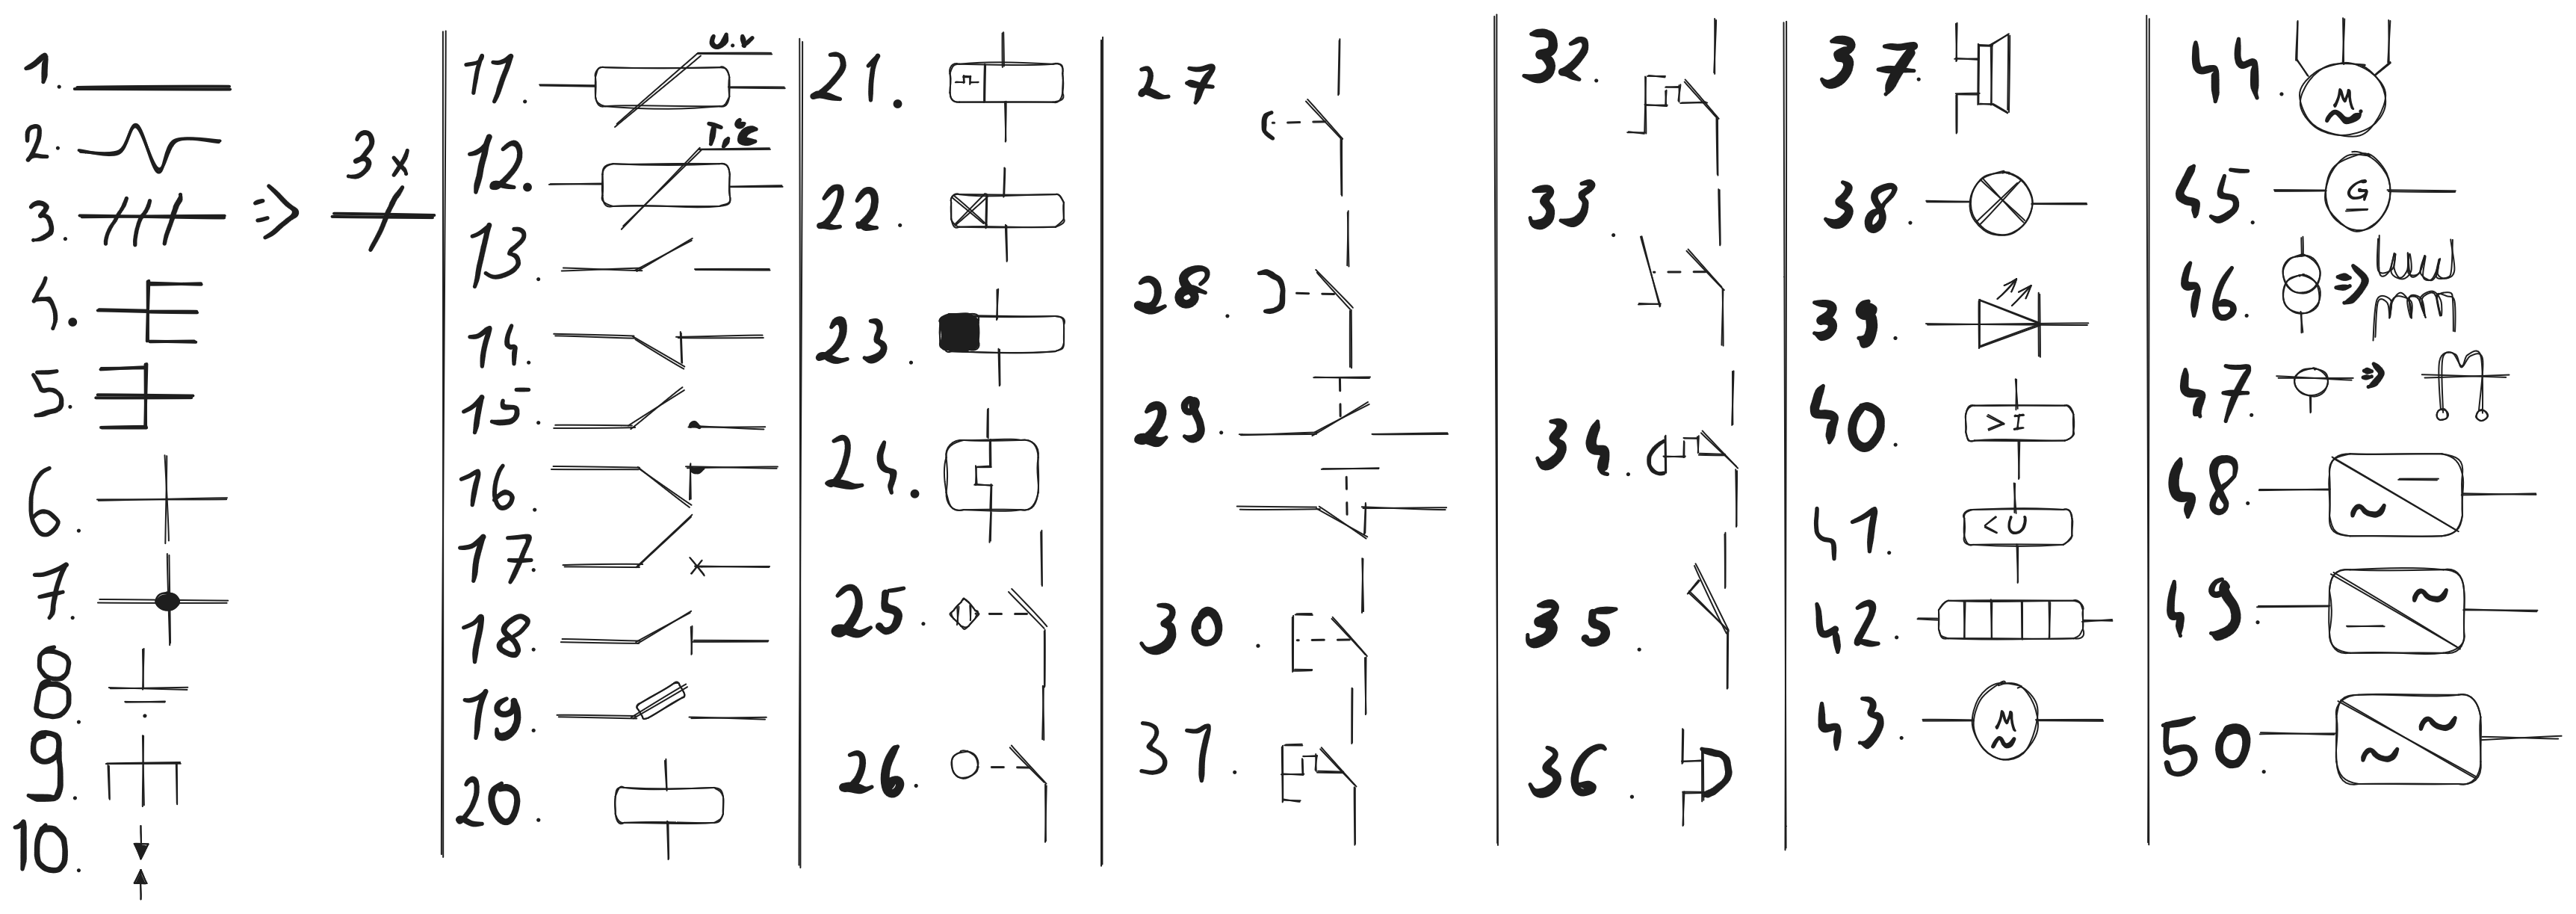 1.
2.
3. => 3x
4.
5.
6.
7.
8.
9.
10.
11. U.V
12. T,°C
13.
14.
15.
16.
17.
18.
19.
20.
21.
22.
23.
24.
25.
26.
27
28.
29.
30.
31.
32.
33.
34.
35.
36.
37.
38.
39.
40. > I
41. < U
42.
43. M ~
44. M ~
45. G
46. =>
47. =>
48. ~
49. ~
50. ~ ~